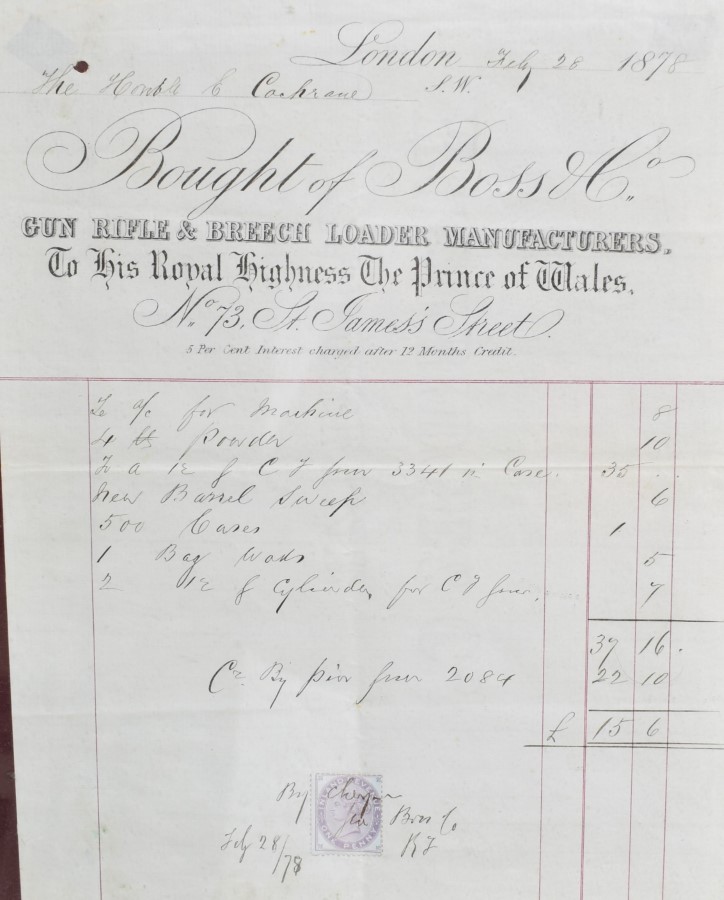 London Feby 28 1878
The Honble E Cochrane S.W.
Bought of Boss & Co.
GUN RIFLE & BREECH LOADER MANUFACTURERS.
To His Royal Highness The Prince of Wales.
No. 73, St. James's Street.
5 Per Cent Interest charged after 12 Months Credit.
To a/c for Machine 8
4 lbs Powder 10
To a 12 g C F gun 3341 in Case. 35 . .
New Barrel Sweep 6
500 Cases 1
1 Bag Wads 5
2 12 g Cylinders for C F gun. 7
37 16 .
Cr. By pin gun 2084 22 10
£ 15 6
INLAND REVENUE
ONE PENNY
By Cheque
for Boss Co
Feby 28/78